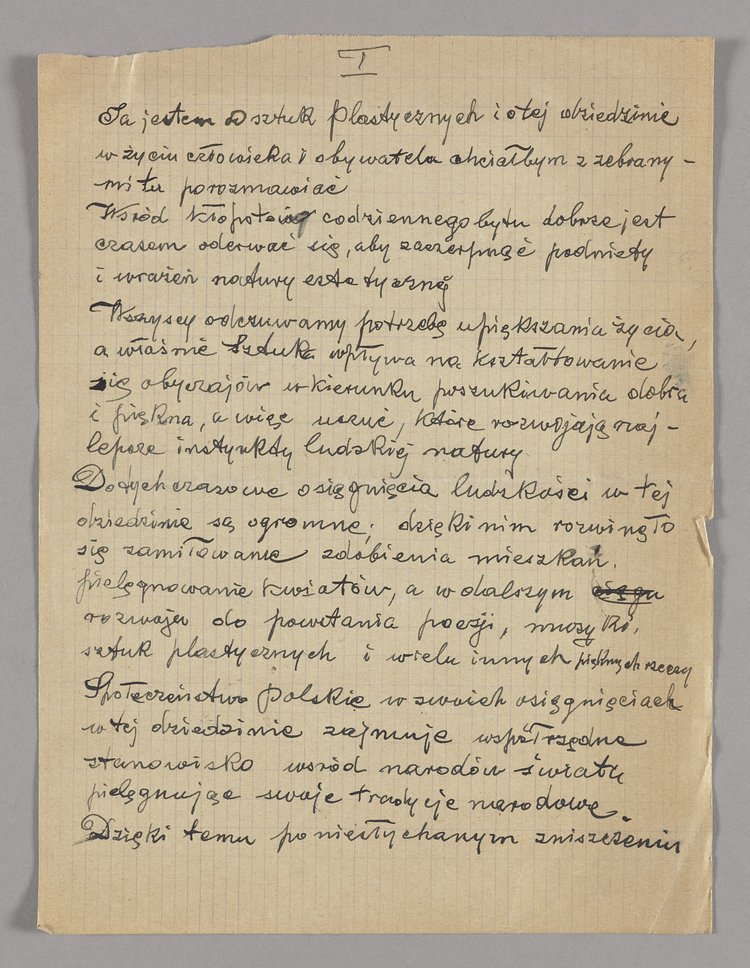 I
Ja jestem o sztuk plastycznych i o tej dziedzinie
w życiu człowieka i obywatela chciałbym z zebrany-
mi tu porozmawiać
Wśród kłopotów codziennego bytu dobrze jest
czasem oderwać się, aby zaczerpnąć podniety
i wrażeń natury estetycznej
Wszyscy odczuwamy potrzebę upiększania życia,
a właśnie Sztuka wpływa na kształtowanie
się obyczajów w kierunku poszukiwania dobra
i piękna, a więc uczuć, które rozwijają naj-
lepsze instynkty ludzkiej natury
Dotychczasowe osiągnięcia ludzkości w tej
dziedzinie są ogromne; dzięki nim rozwinęło
się zamiłowanie zdobienia mieszkań,
pielęgnowanie kwiatów, a w dalszym ciągu
rozwoju do powstania poezji, muzyki,
sztuk plastycznych i wielu innych pięknych rzeczy
Społeczeństwo Polskie w swoich osiągnięciach
w tej dziedzinie zajmuje współrzędne
stanowisko wśród narodów świata
pielęgnując swoje tradycje narodowe.
Dzięki temu po niesłychanym zniszczeniu